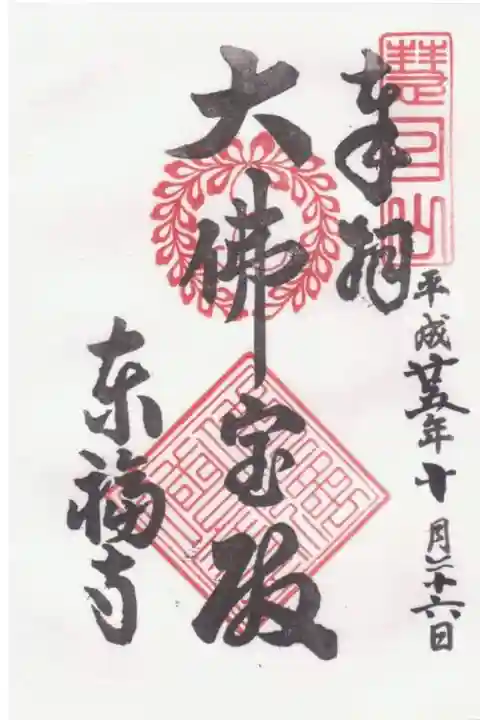 慧日山
奉拝
平成廿五年十月二十六日
大佛宝殿
東福寺